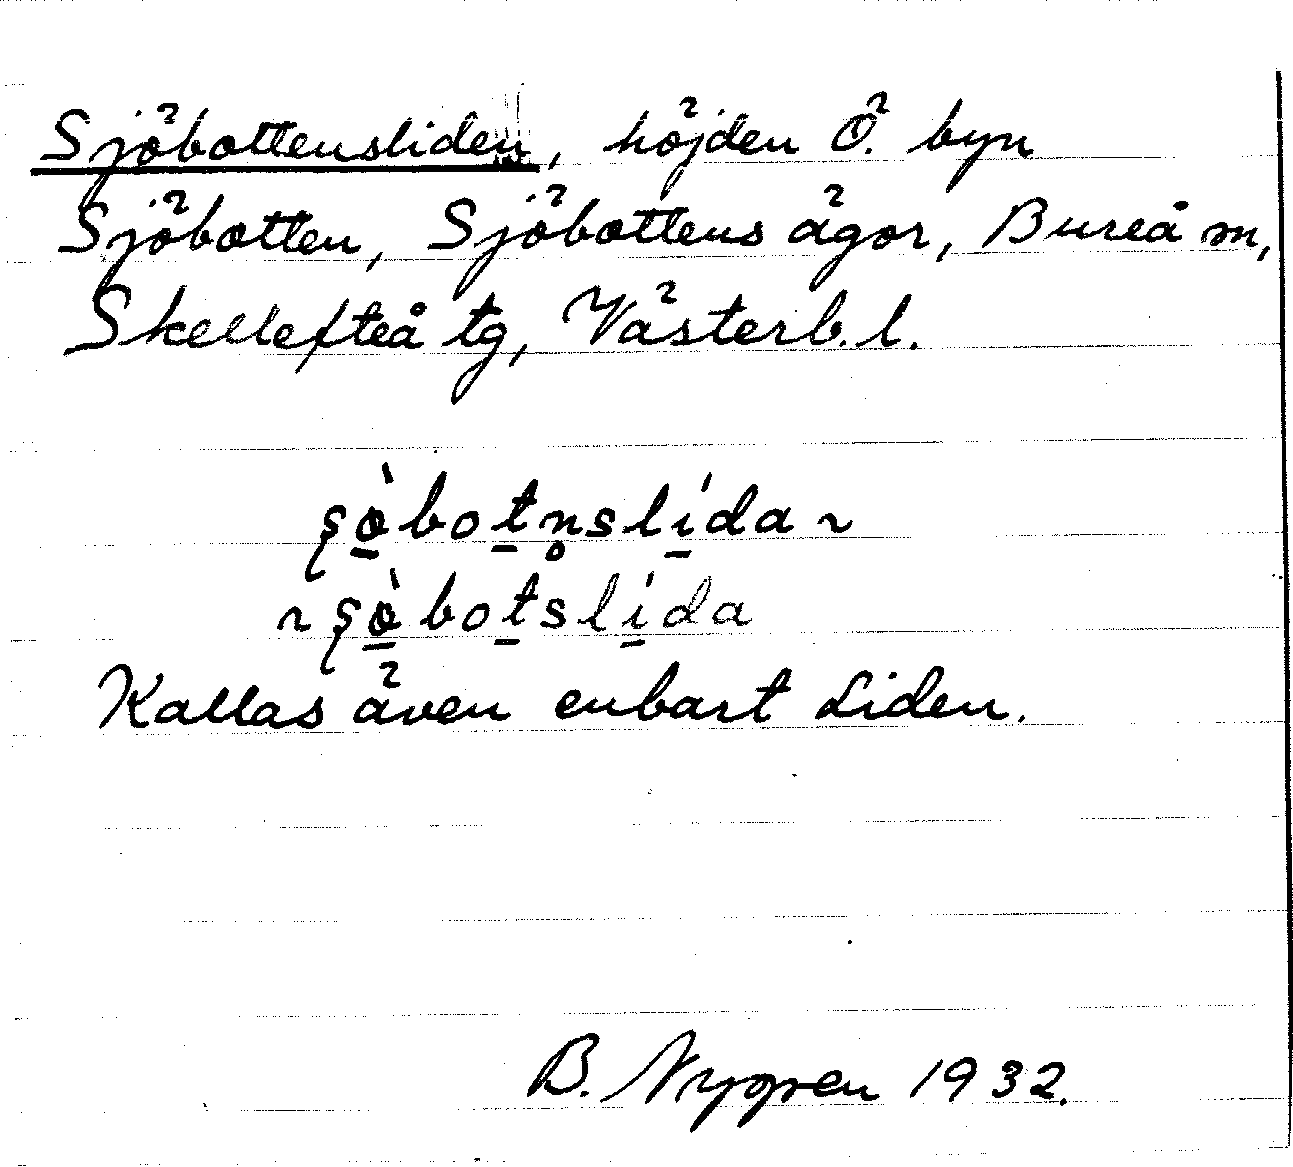 Sjöbottensliden, höjden Ö. byn
Sjöbotten, Sjöbottens ägor, Bureå sn,
Skellefteå tg, Västerb. l.
ʂö̀botn̥slída ~
~ ʂö̀botslída
Kallas även enbart Liden.
B. Nygren 1932.